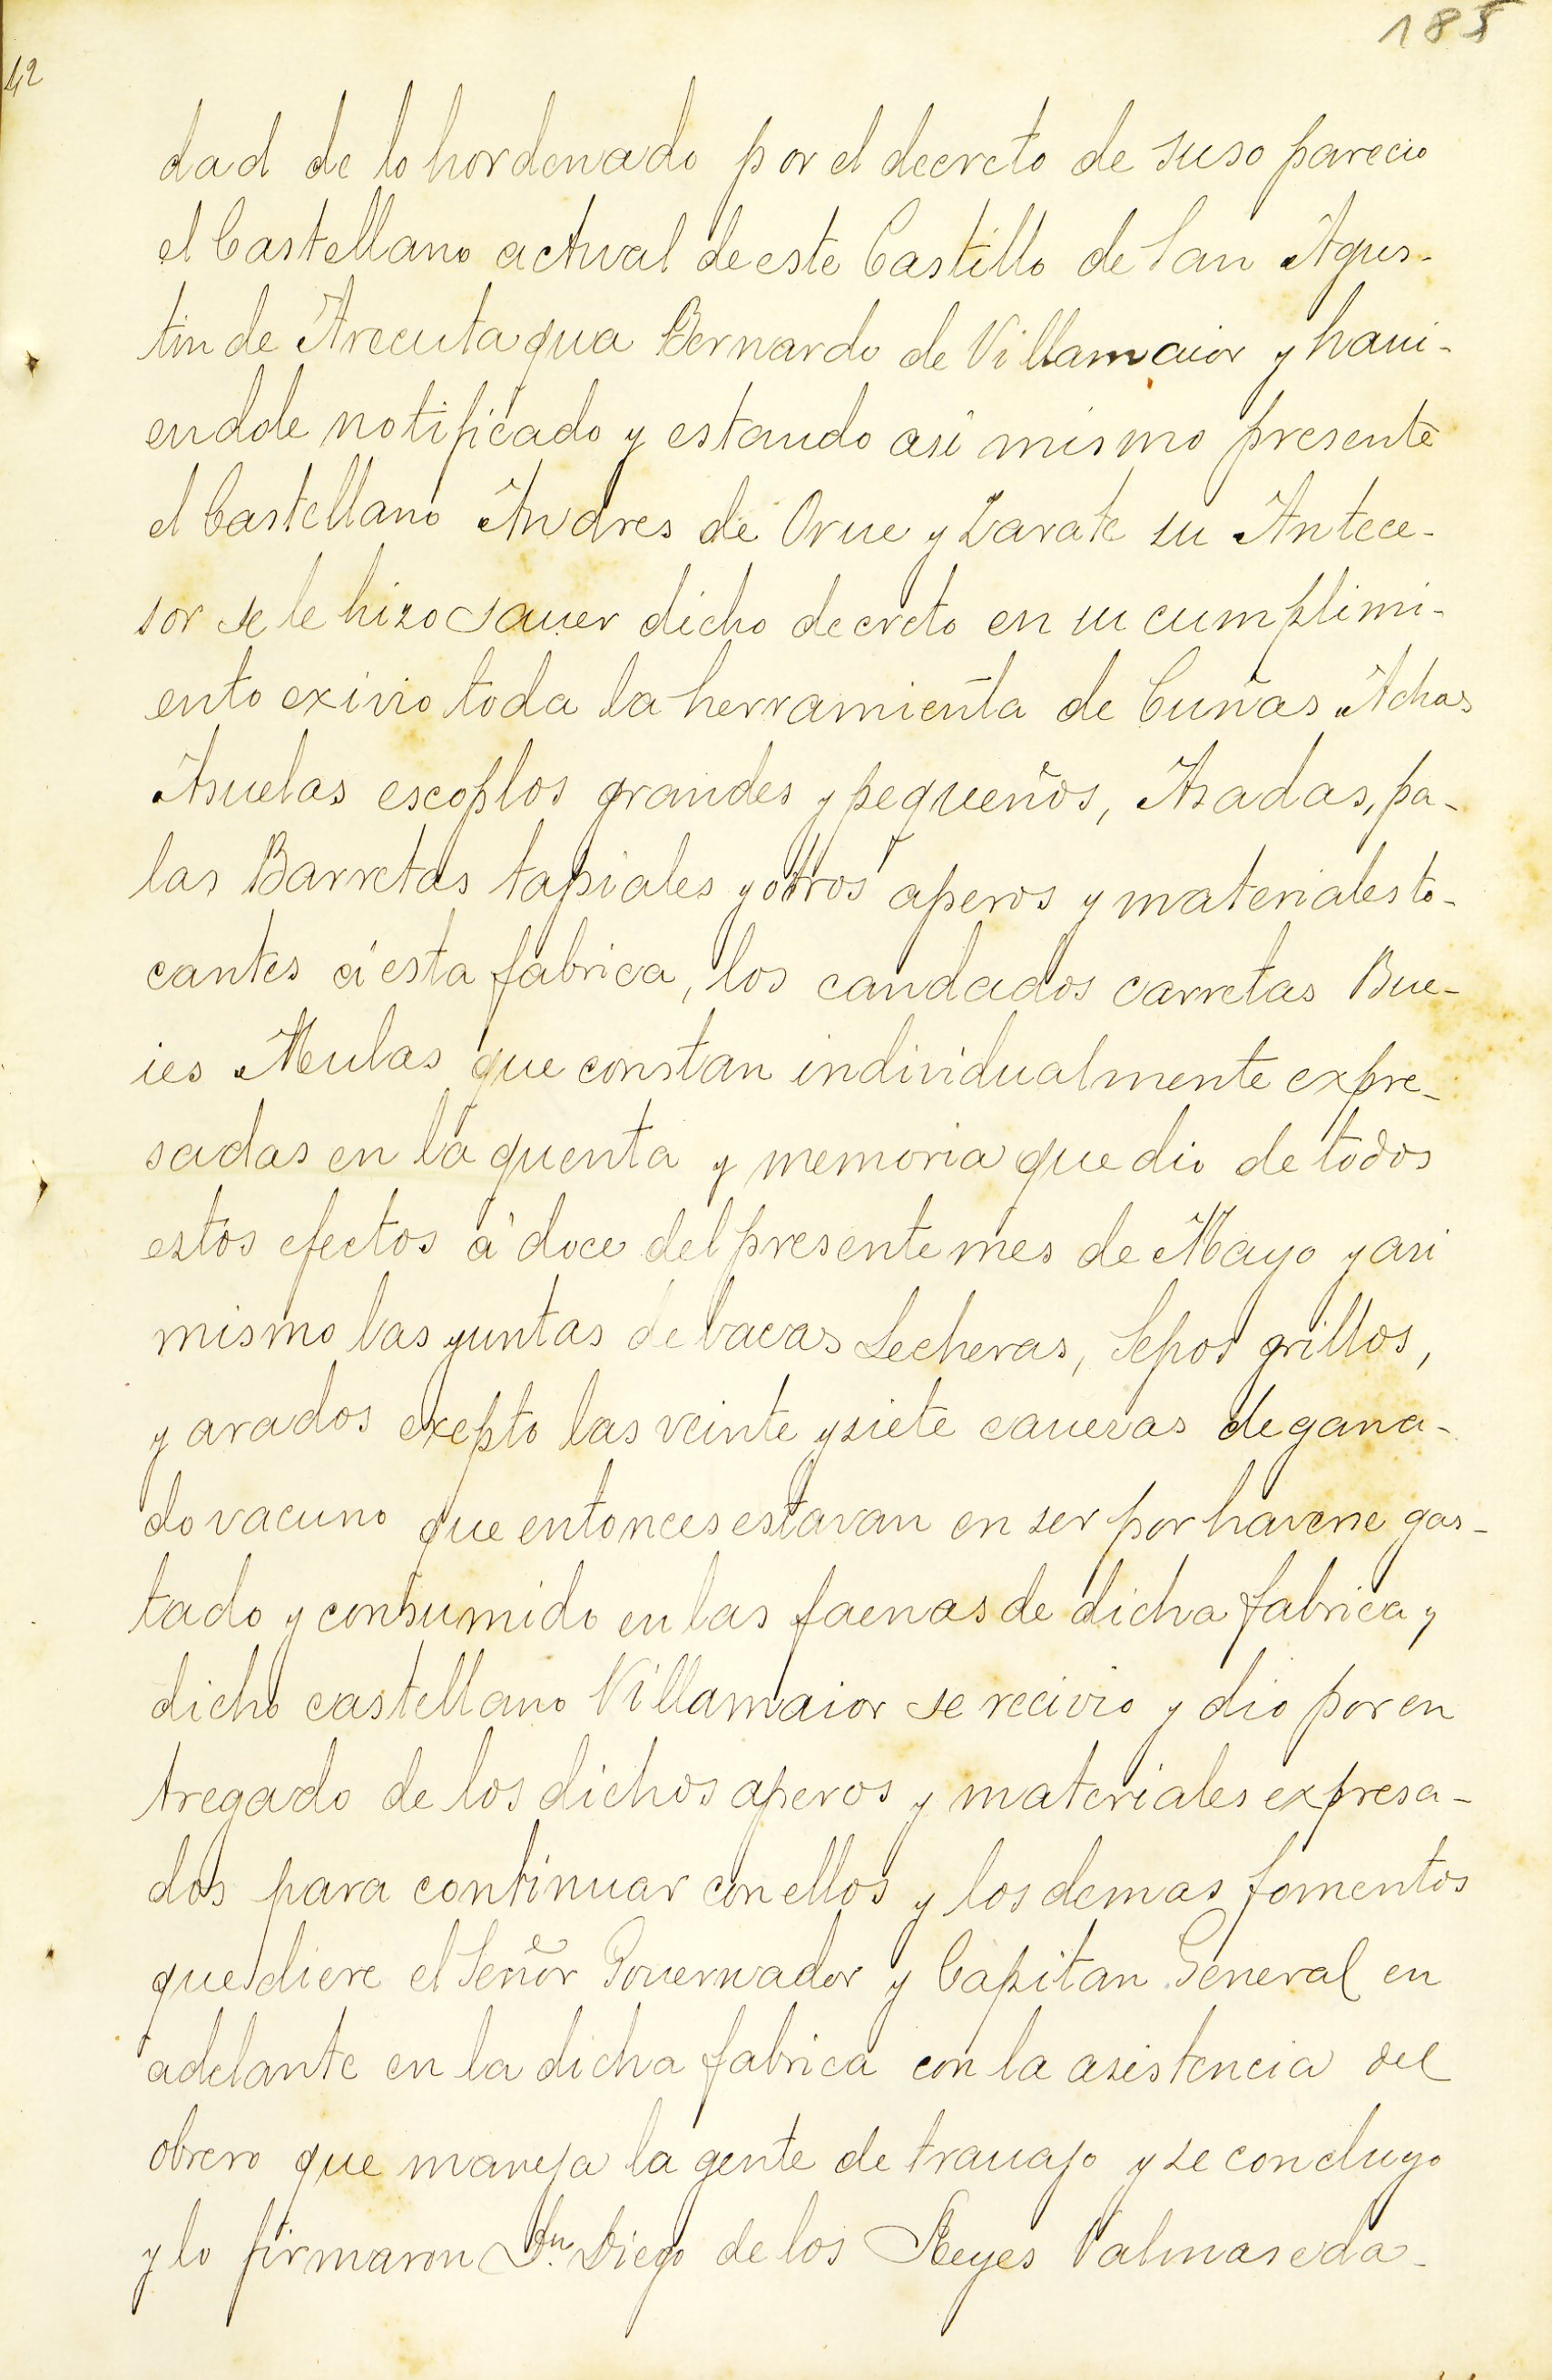 185
42
dad de lo hordenado por el decreto de suso parecio
el Castellano actual de este Castillo de San Agus-
tin de Arecutaqua Bernardo de Villamaior y haui-
endole notificado y estando asi mismo presente
el Castellano Andres de Orue y Zarate su Antece-
sor se le hizo sauer dicho decreto en su cumplimi-
ento exivio toda la herramienta de Cuñas Achas
Asuelas escoplos grandes y pequeños, Asadas, pa-
las Barretas tapiales y otros aperos y materiales to-
cantes á esta fabrica, los candados carretas Bue-
ies Mulas que constan individualmente expre-
sadas en la quenta y memoria que dio de todos
estos efectos á doce del presente mes de Mayo y asi
mismo las yuntas de bacas Lecheras, Sepos grillos,
y arados exepto las veinte y siete cauezas de gana-
do vacuno que entonces estavan en ser por haverse gas-
tado y consumido en las faenas de dicha fabrica y
dicho castellano Villamaior se recivio y dio por en
tregado de los dichos aperos y materiales expresa-
dos para continuar con ellos y los demas fomentos
que diere el Señor Gouernador y Capitan General en
adelante en la dicha fabrica con la asistencia del
obrero que maneja la gente de trauajo y se concluyo
y lo firmaron Dn. Diego de los Reyes Valmaseda-